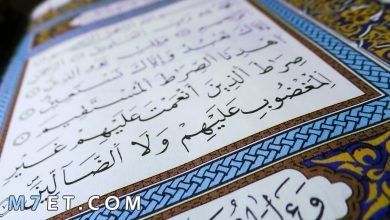 إِيَّاكَ نَعْبُدُ وَإِيَّاكَ نَسْتَعِينُ
ٱهْدِنَا ٱلصِّرَٰطَ ٱلْمُسْتَقِيمَ
صِرَٰطَ ٱلَّذِينَ أَنْعَمْتَ عَلَيْهِمْ غَيْرِ
ٱلْمَغْضُوبِ عَلَيْهِمْ وَلَا ٱلضَّآلِّينَ
M7ET.COM